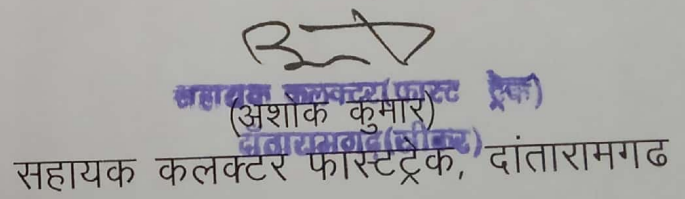 सहायक कलक्टर(फास्ट ट्रेक)
(अशोक कुमार)
दांतारामगढ(सीकर)
सहायक कलक्टर फास्टट्रेक, दांतारामगढ